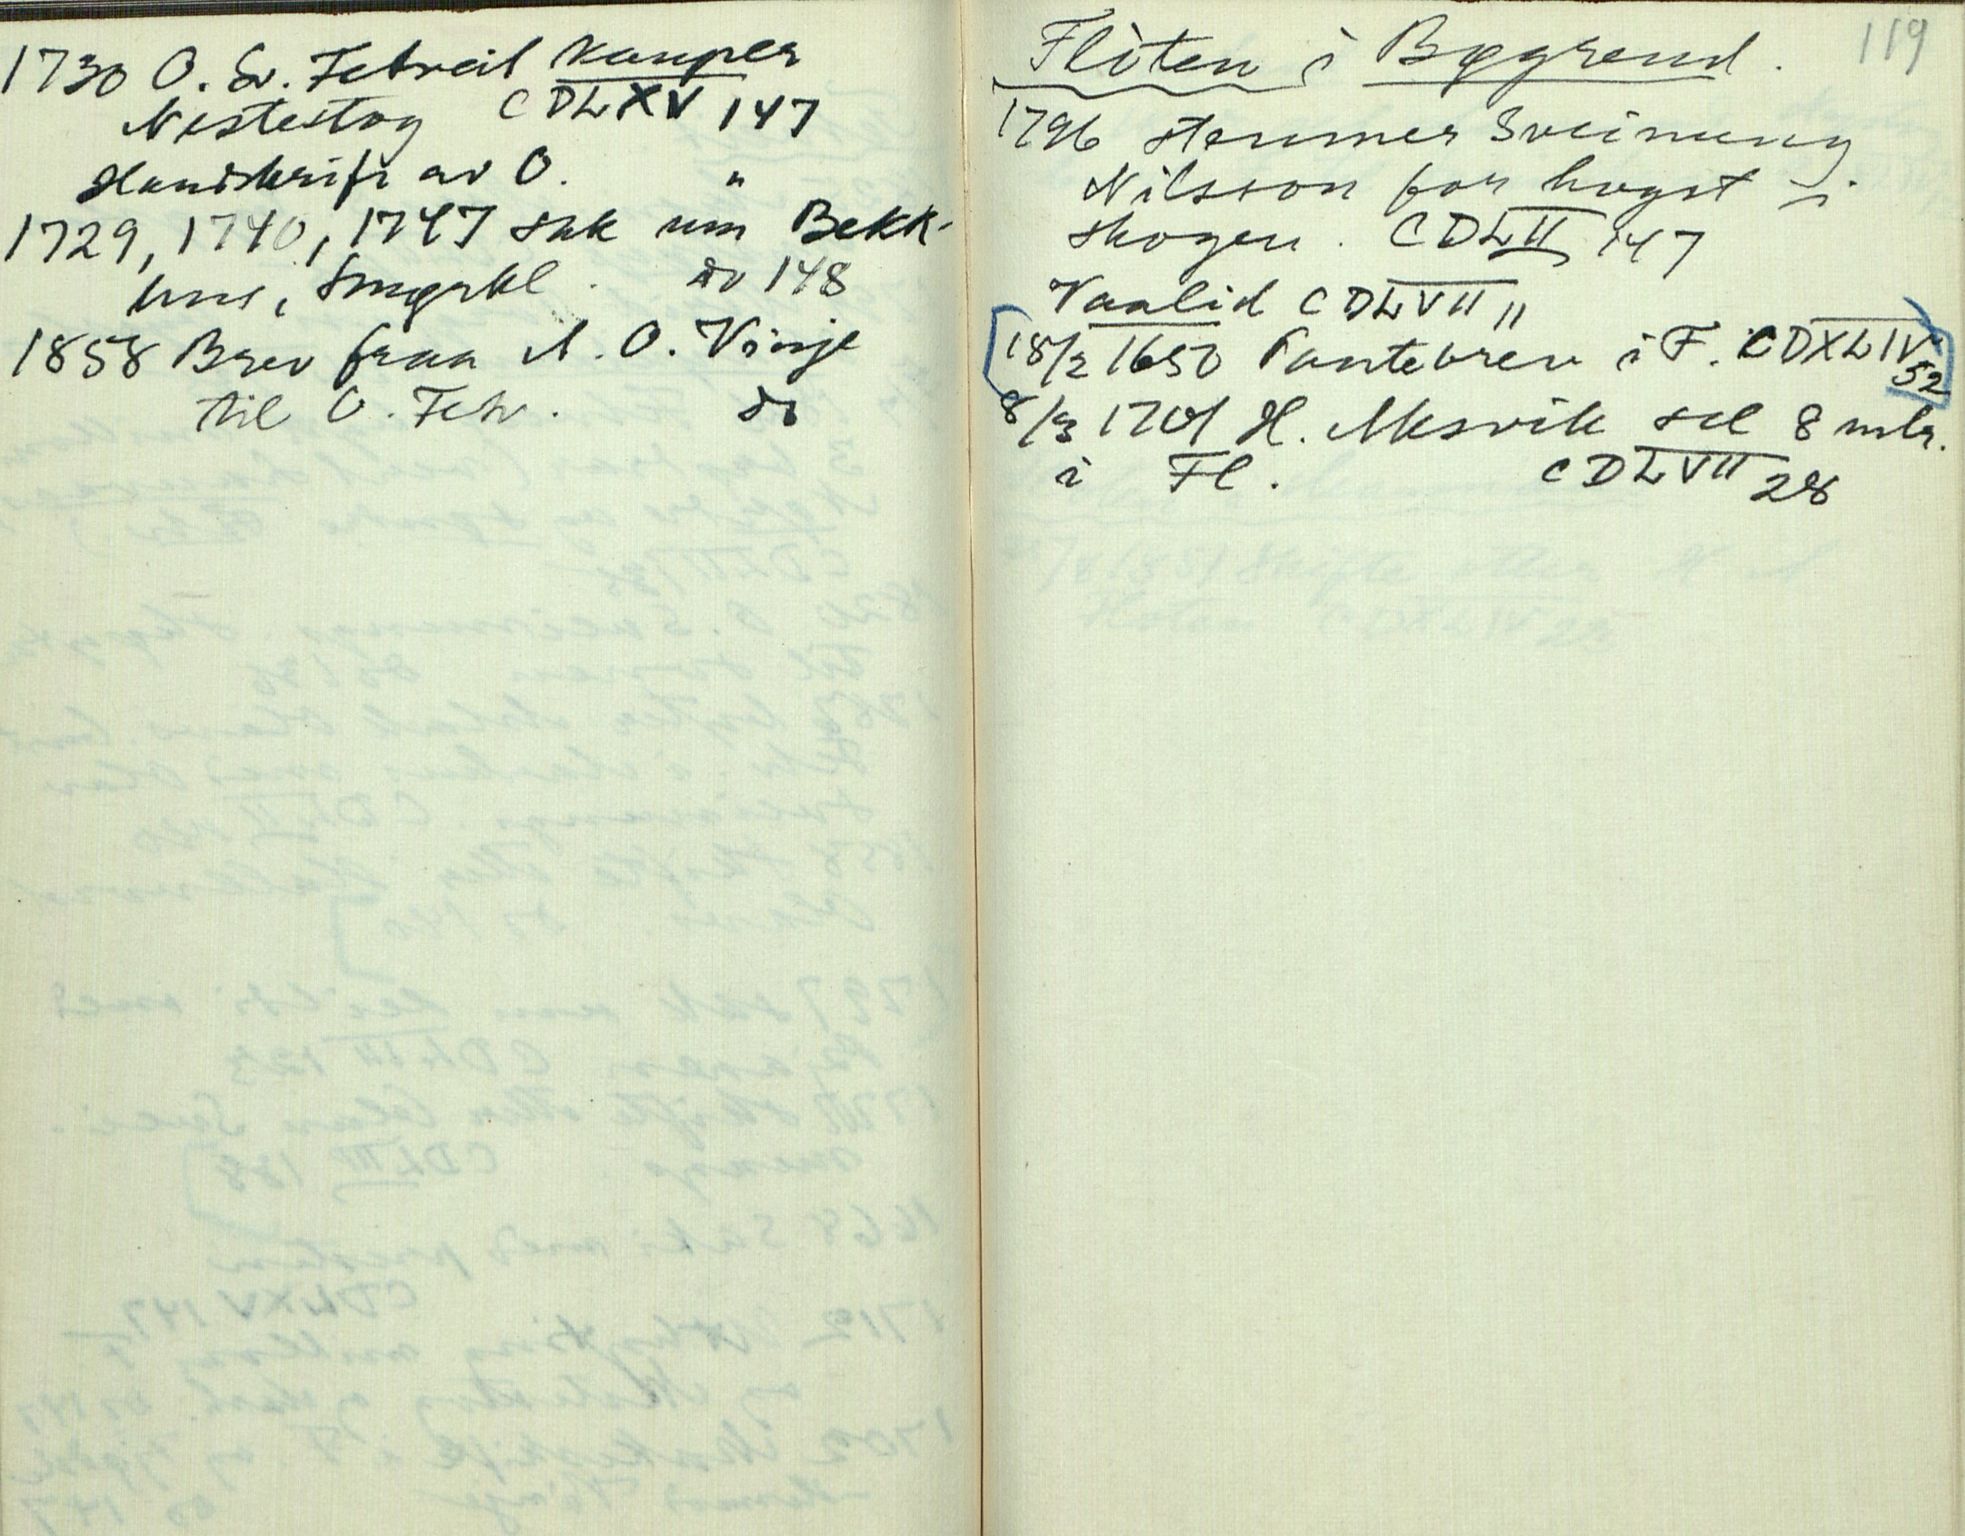 1730 O. Sv. Fetveit kauper
Nestestog CDLXV 147
Handskrift av O. "
1729, 1740, 1747 sak um Bekk-
hus, Smørkl. do 148
1858 Brev fraa A. O. Vinje
til O. Fetv. do
119
Flòten i Bøgrend.
1796 stemner Sveinung
Nilsson for hogst i
skogen. CDLII 147
Vaalid CDLVII 11
18/2 1650 Pantebrev i F. CDXLIV
52
8/3 1701 H. Aksvik sel 8 mk.
i Fl. CDLVII 28